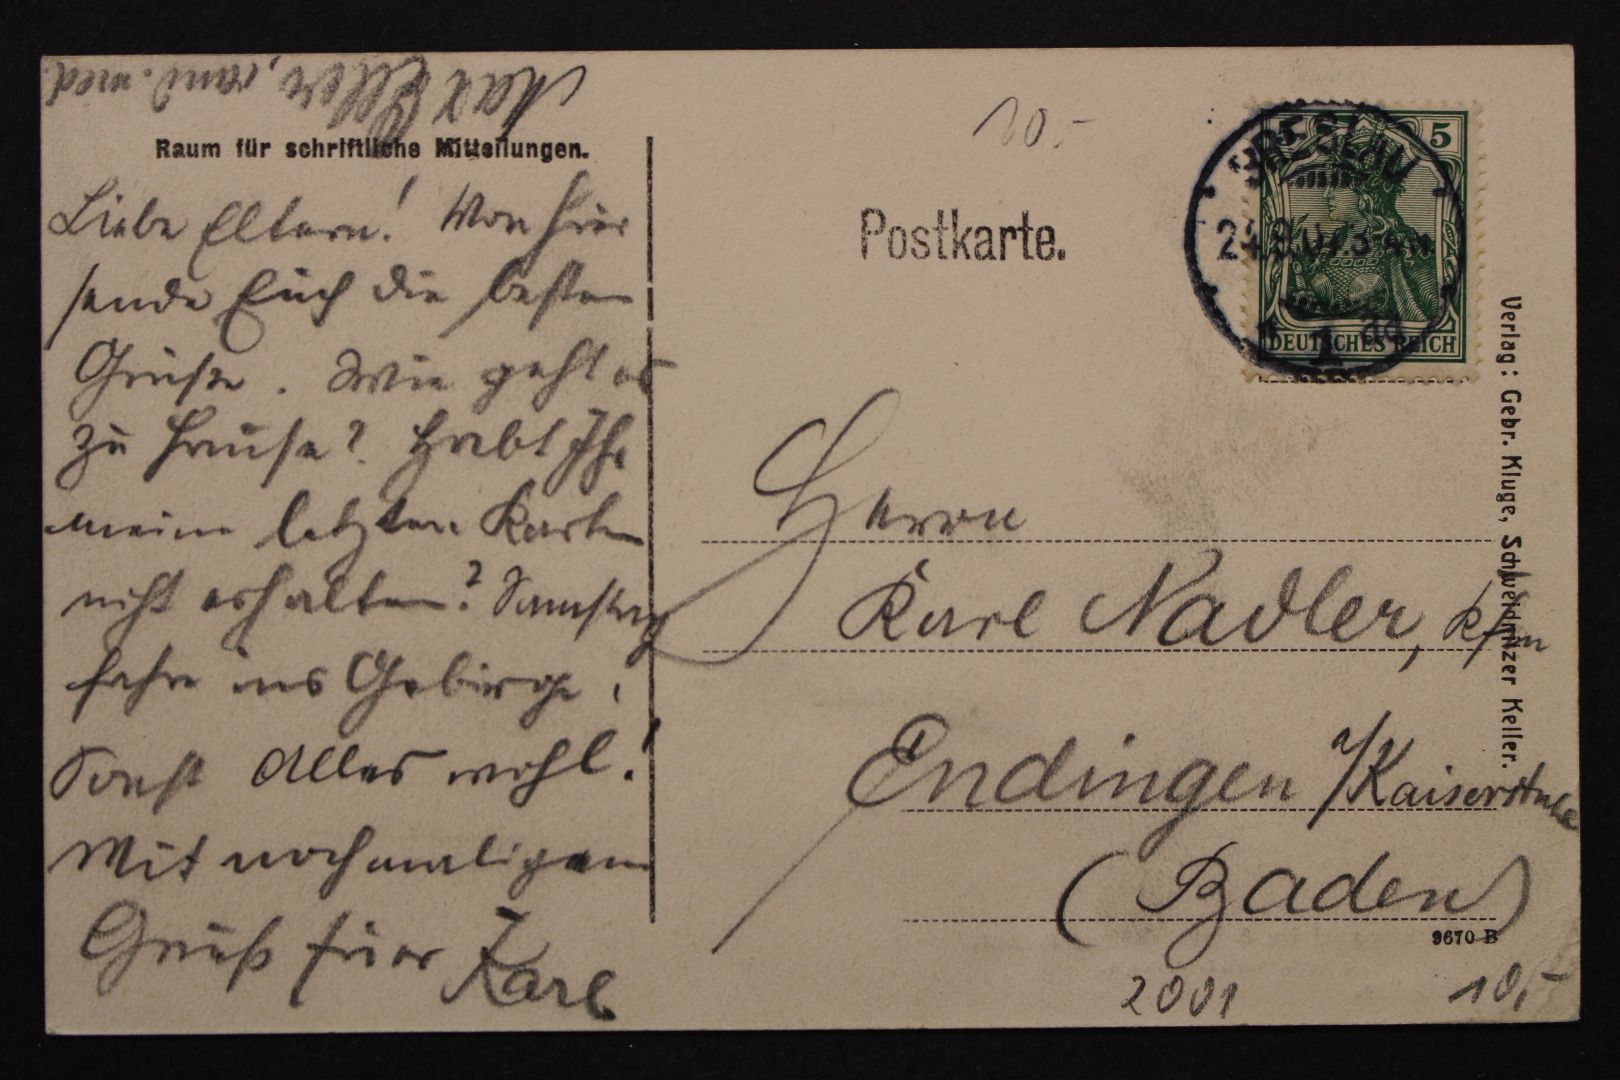 Max Eller, cand. med.
Raum für schriftliche Mitteilungen.
Liebe Eltern! Von hier
sende Euch die besten
Grüße. Wie geht es
zu Hause? Habt Ihr
meine letzten Karten
nicht erhalten? Samstag
fahre ins Gebirge.
Sonst Alles wohl!
Mit nochmaligem
Gruß Euer Karl
10.-
Postkarte.
BRESLAU
5
DEUTSCHES REICH
1
Herrn
Karl Nadler, Kfm
Endingen a/Kaiserstuhl
(Baden)
9670 B
2001
10,-
Verlag: Gebr. Kluge, Schweidnitzer Keller.